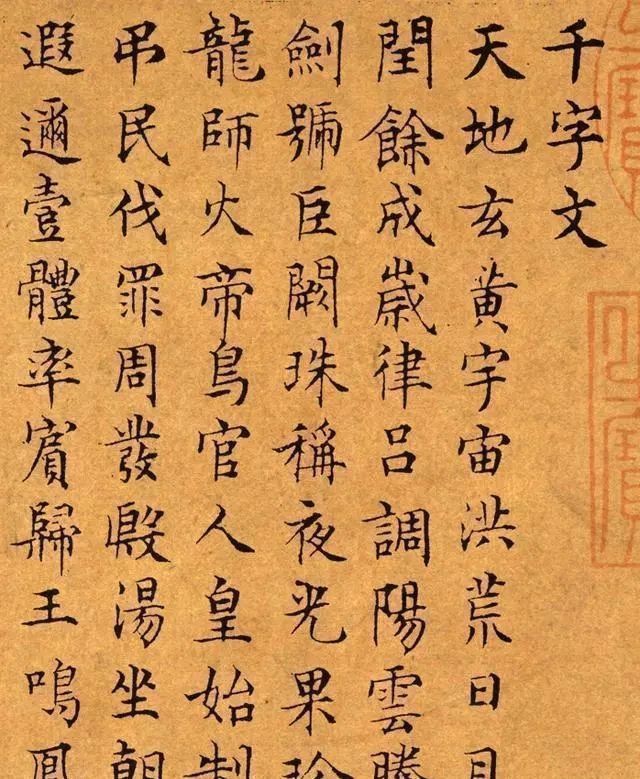 千字文
天地玄黃宇宙洪荒日月
閏餘成歲律呂調陽雲騰
劍號巨闕珠稱夜光果珍
龍師火帝鳥官人皇始制
吊民伐罪周發殷湯坐朝
遐邇壹體率賓歸王鳴鳳